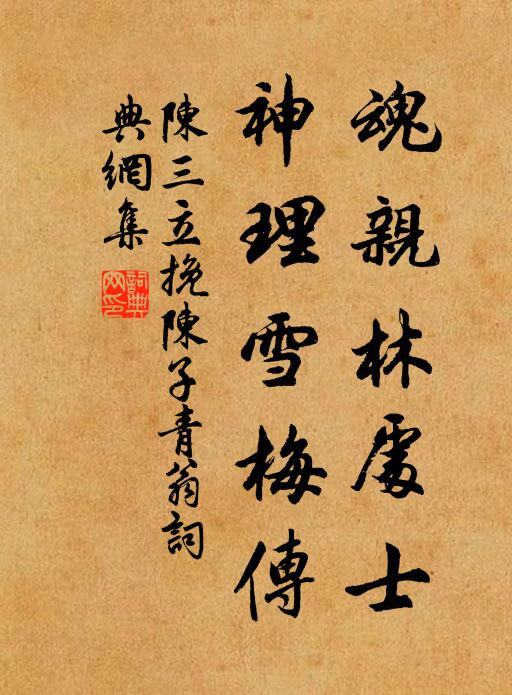 魂親林處士
神理雪梅傳
陳三立挽陳子青翁詞
典網集
詞典网印